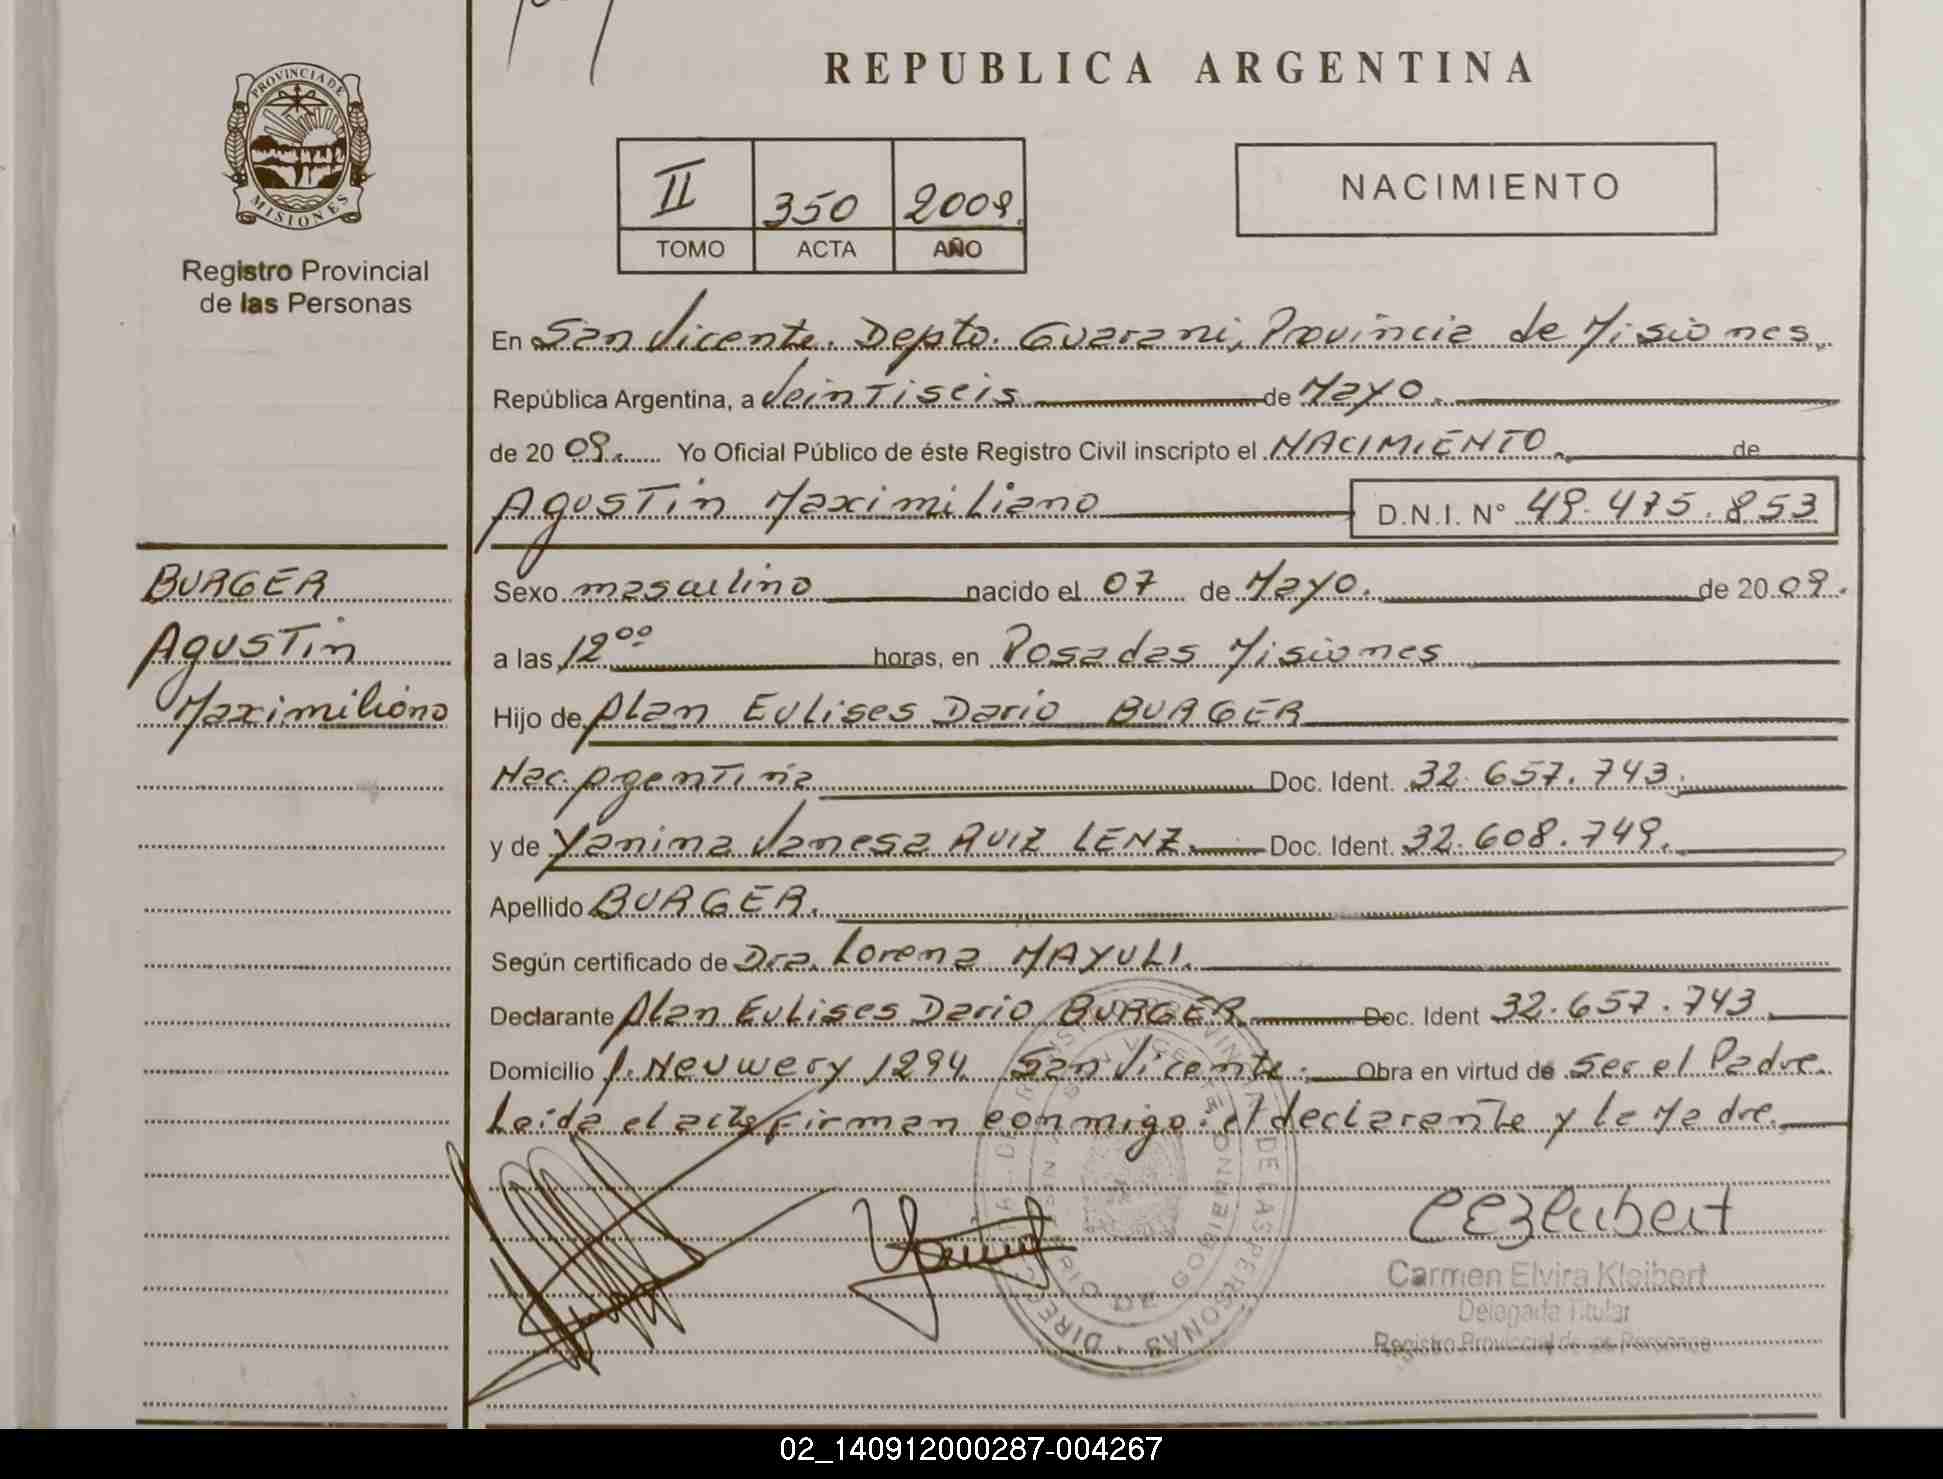 REPUBLICA ARGENTINA
PROVINCIA DE
MISIONES
Registro Provincial
de las Personas
II 350 2009.
TOMO ACTA AÑO
NACIMIENTO
En San Vicente. Depto. Guarani, Provincia de Misiones.
República Argentina, a Veintiseis de Mayo.
de 20 09. Yo Oficial Público de éste Registro Civil inscripto el NACIMIENTO. de
Agustin Maximiliano D.N.I. N° 49.475.853
BURGER
Agustin
Maximiliano
Sexo masculino nacido el 07 de Mayo. de 20 09.
a las 12 00 horas, en Posadas Misiones
Hijo de Alan Eulises Dario BURGER
Nac. Argentina Doc. Ident. 32.657.743.
y de Yanina Vanesa RUIZ LENZ. Doc. Ident. 32.608.749.
Apellido BURGER.
Según certificado de Dra. Lorena MAYULI.
Declarante Alan Eulises Dario BURGER. Doc. Ident 32.657.743
Domicilio J. Neuwery 1294 San Vicente. Obra en virtud de Ser el Padre.
Leida el acta firman conmigo: el declarante y la Madre.
Carmen Elvira Kleibert
Delegada Titular
Registro Provincial de las Personas
02_140912000287-004267